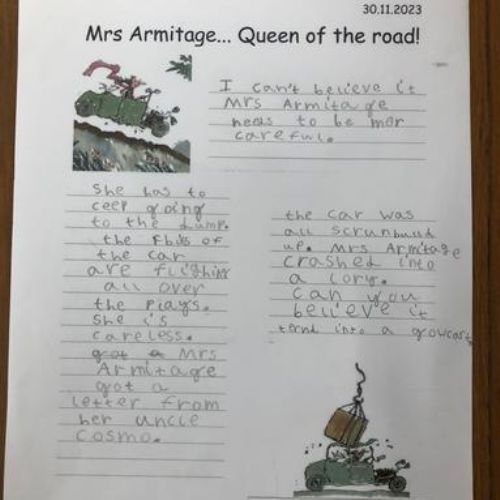 30.11.2023
Mrs Armitage... Queen of the road!
I can't believe it
Mrs Armitage
needs to be mor
careful.
She has to
ceep going
to the dump.
the
the car
are
all over
the Plays.
She is
careless.
got a Mrs
Armitage
got a
letter from
her uncle
cosmo.
the car was
all
up. Mrs Armitage
crashed into
a lory.
can you
believe it
ternd into a